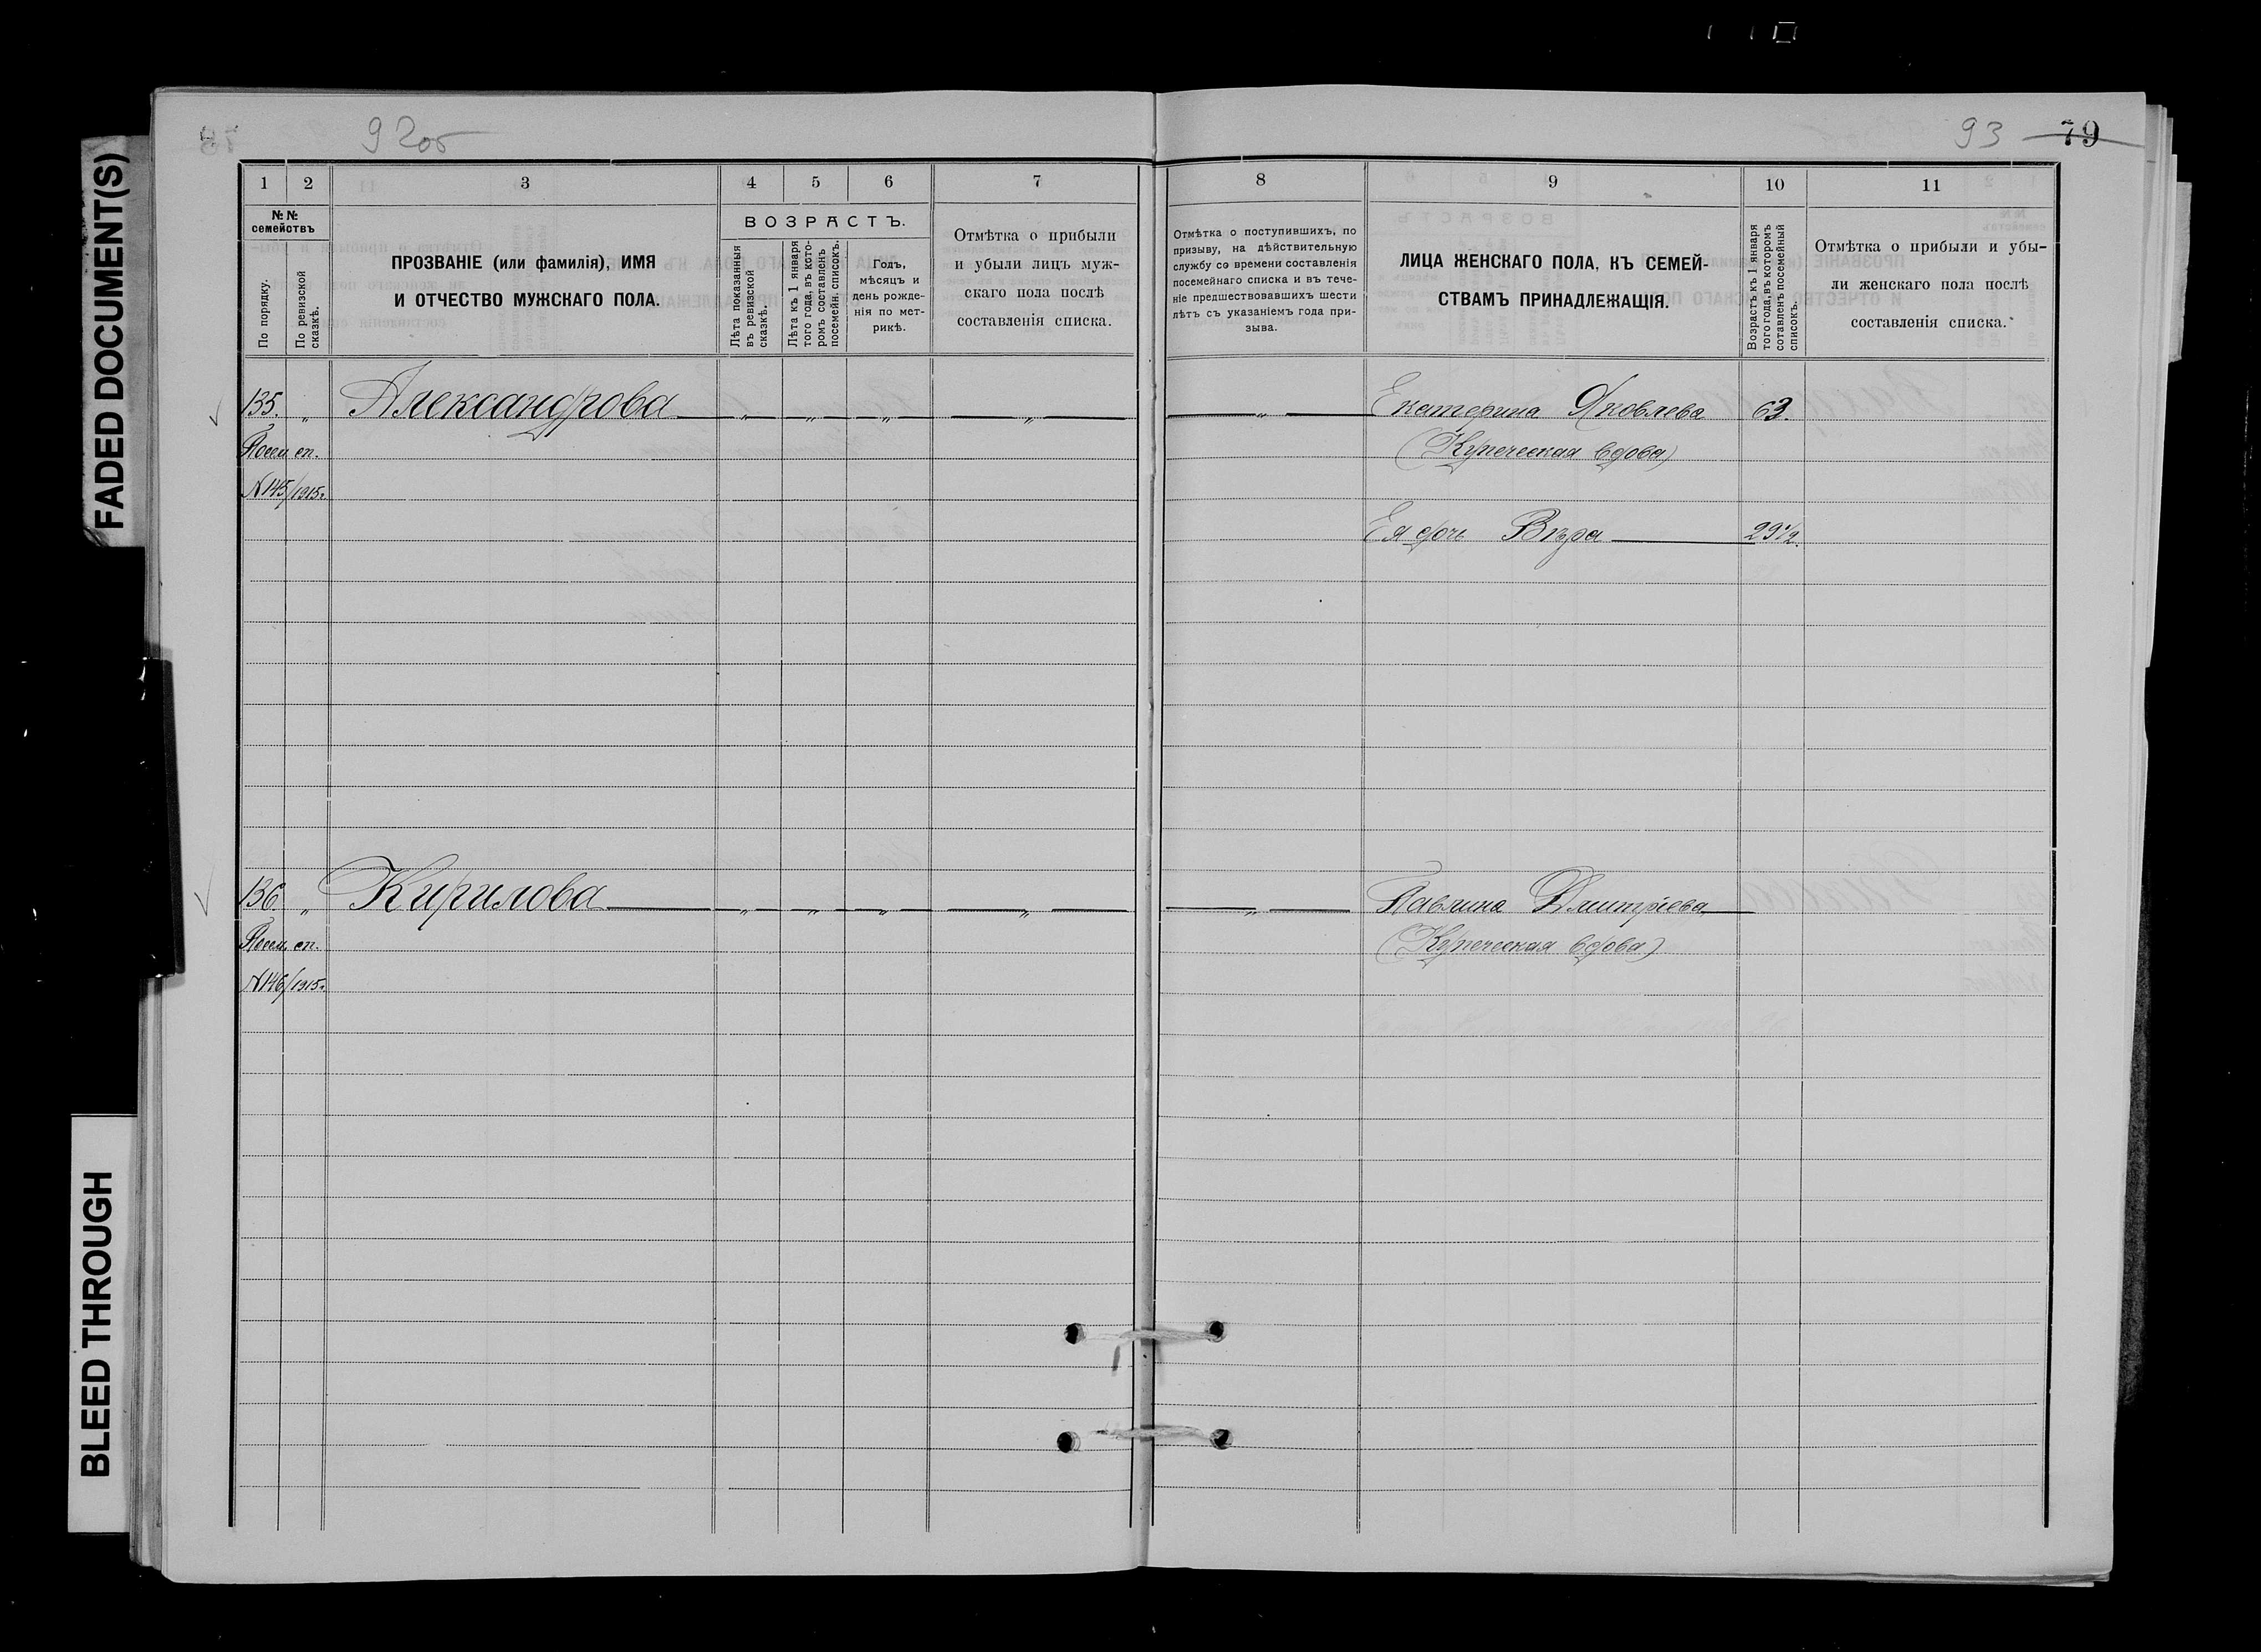 FADED DOCUMENT(S)
BLEED THROUGH
92об
93 79
1 2 3 4 5 6 7
№ № семействъ
По порядку.
По ревизской сказкѣ.
ПРОЗВАНІЕ (или фамилія), ИМЯ
И ОТЧЕСТВО МУЖСКАГО ПОЛА.
ВОЗРАСТЪ.
Лѣта показанныя
въ ревизской
сказкѣ.
Лѣта къ 1 января
того года, въ кото-
ромъ составленъ
посемейн. списокъ.
Годъ,
мѣсяцъ и
день рожде-
нія по мет-
рикѣ.
Отмѣтка о прибыли
и убыли лицъ муж-
скаго пола послѣ
составленія списка.
135. „ Александрова „ „ „ „
Посем. сп.
№145/1915г.
136. „ Кирилова „ „ „ „
Посем. сп.
№146/1915г.
8 9 10 11
Отмѣтка о поступившихъ, по
призыву, на дѣйствительную
службу со времени составленія
посемейнаго списка и въ тече-
ніе предшествовавшихъ шести
лѣтъ съ указаніемъ года при-
зыва.
ЛИЦА ЖЕНСКАГО ПОЛА, КЪ СЕМЕЙ-
СТВАМЪ ПРИНАДЛЕЖАЩІЯ.
Возрастъ къ 1 января
того года, въ которомъ
сотавленъ посемейный
списокъ.
Отмѣтка о прибыли и убы-
ли женскаго пола послѣ
составленія списка.
„ Екатерина Яковлева 63.
(Купеческая вдова)
Ея дочь Вѣра 29 1/2.
„ Павлина Дмитріева
(Купеческая вдова)